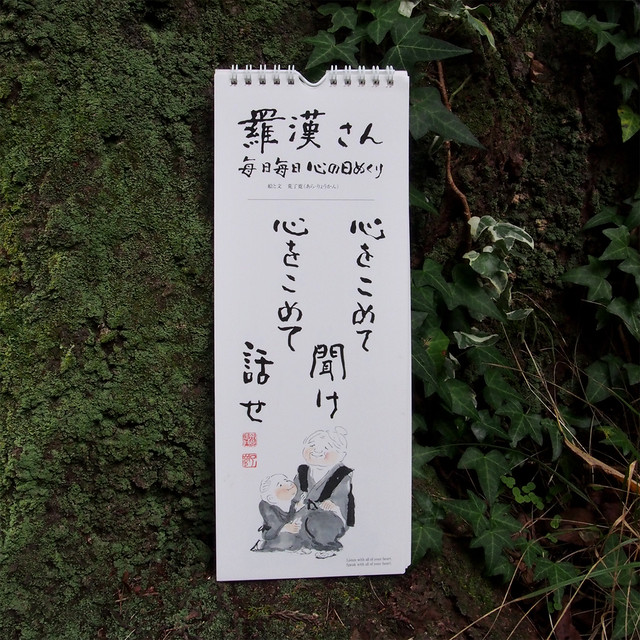 羅漢さん
毎日毎日心の日めくり
心をこめて
聞け
心をこめて
話せ